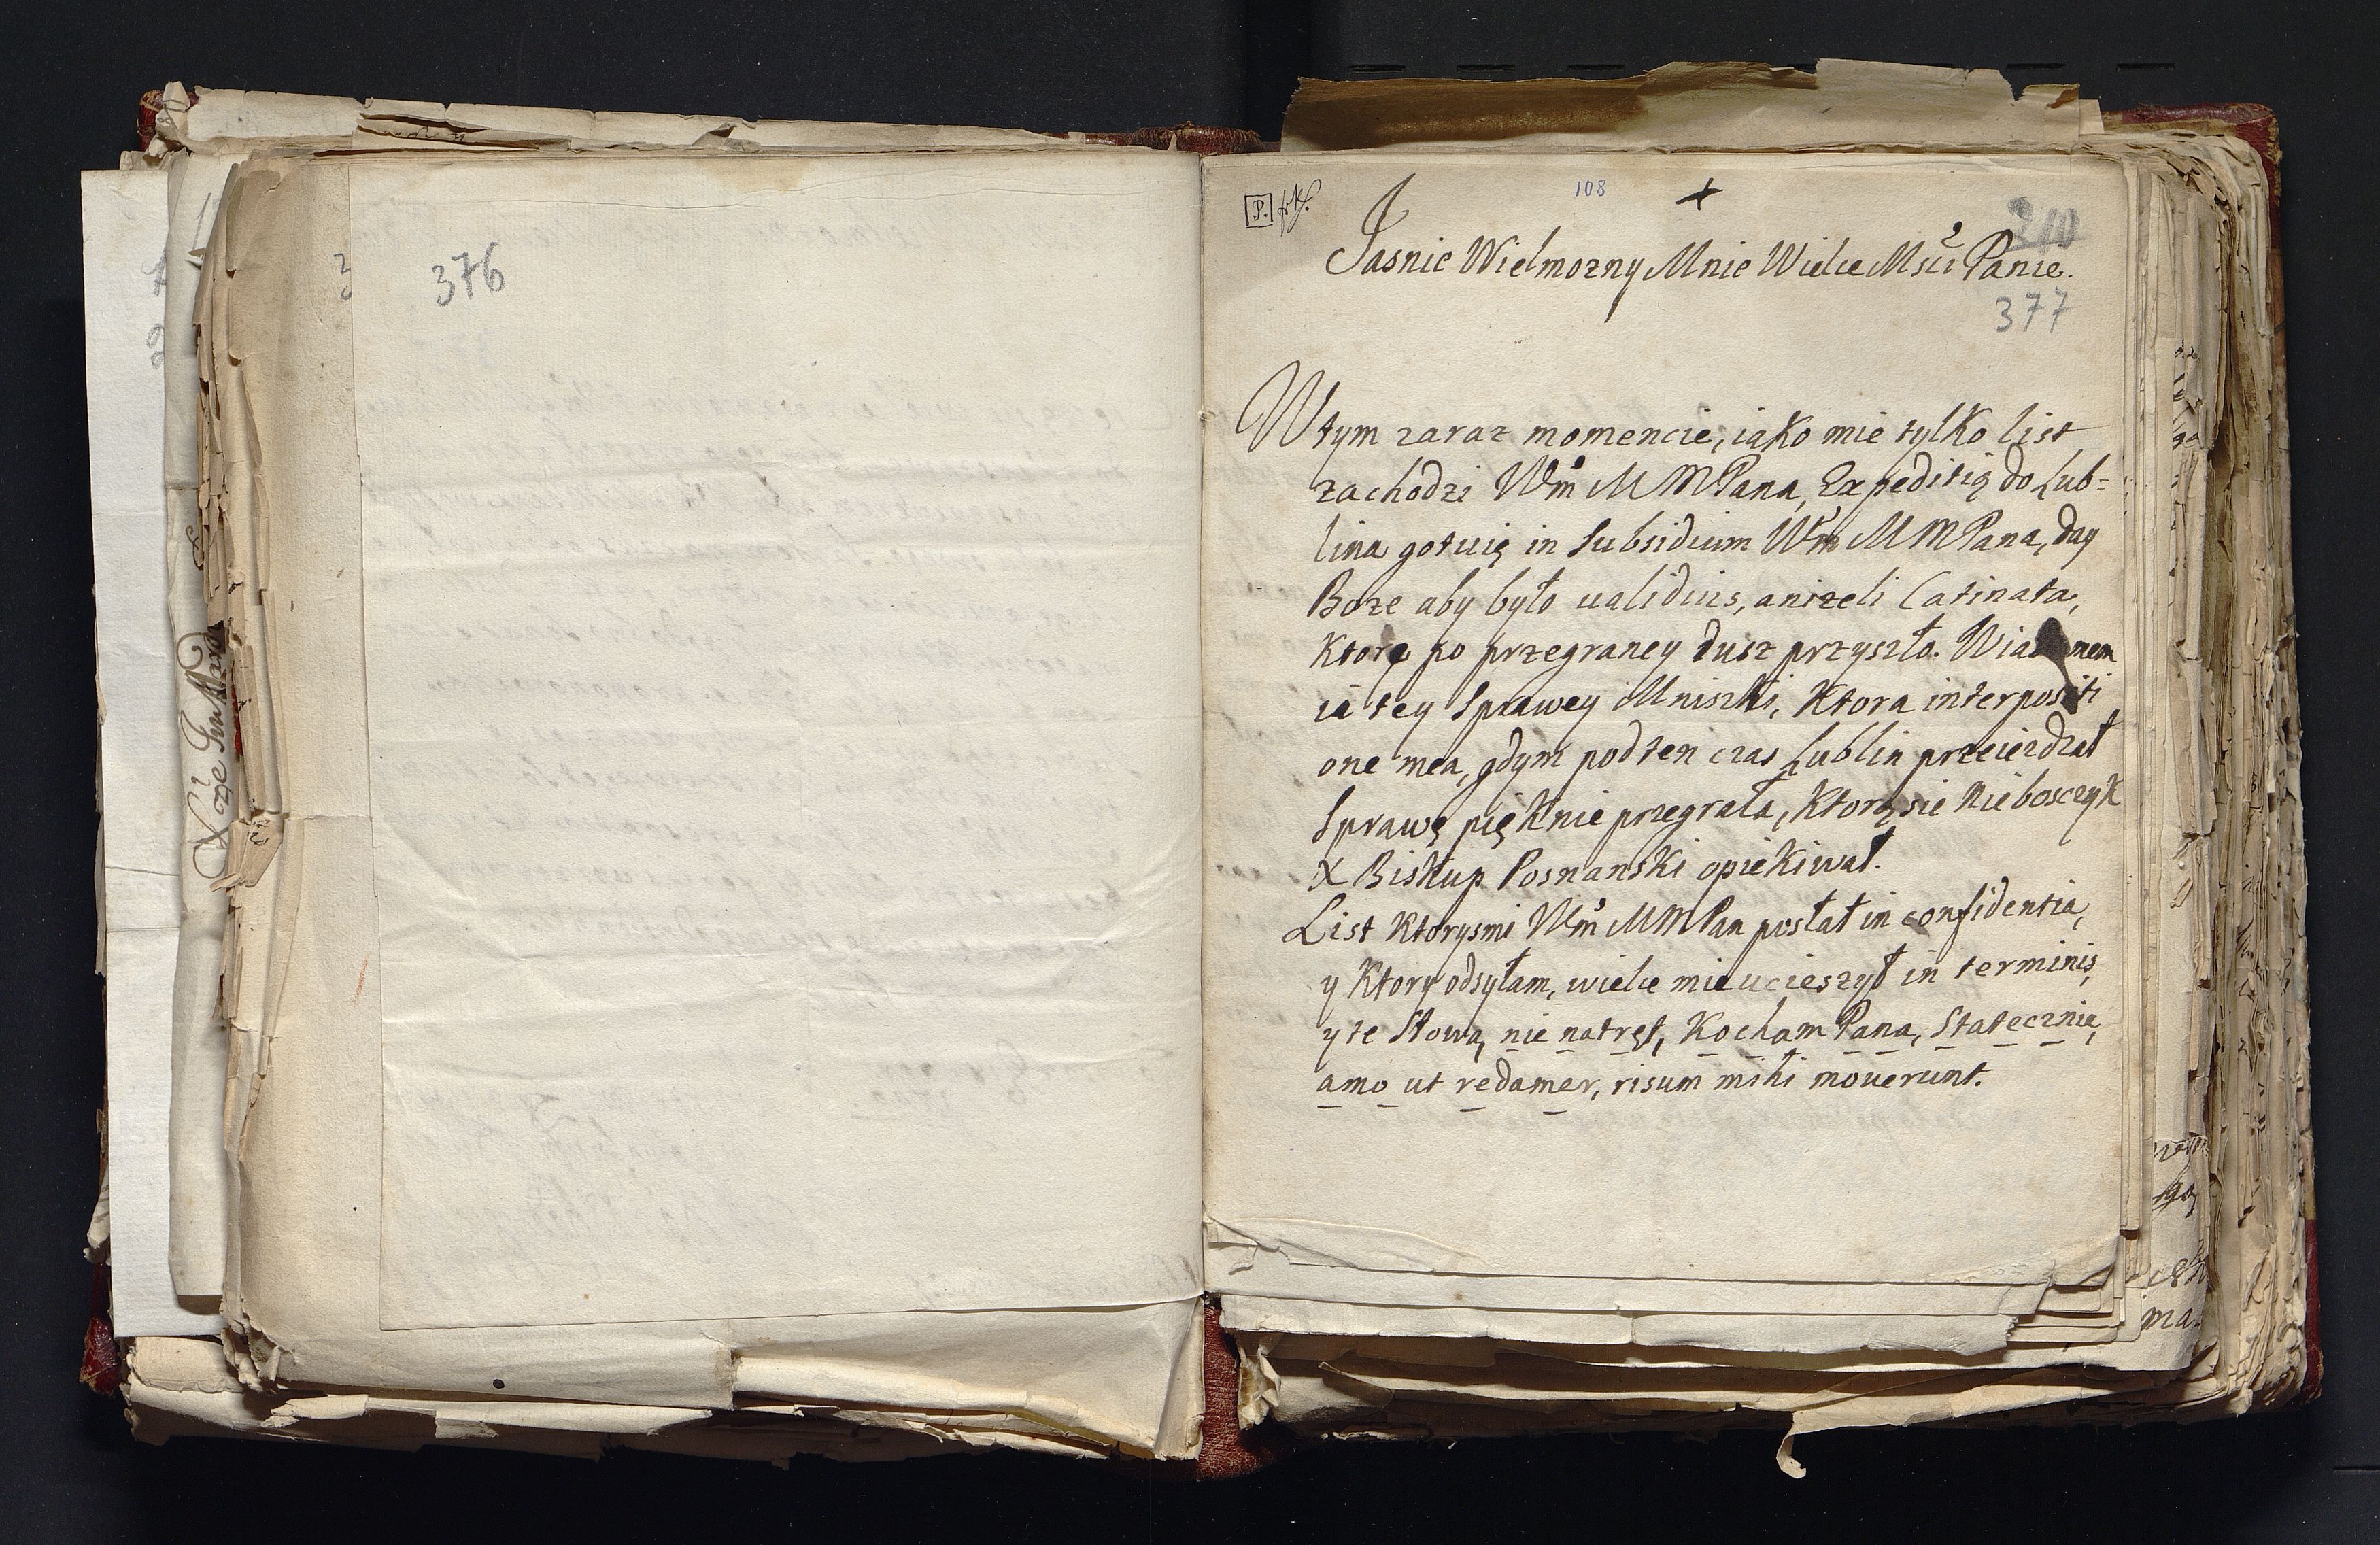 376
108
210
Jasnie Wielmozny Mnie Wielce Msci Panie.
377
W tym zaraz momencie, iako mie tylko list
zachodzi Wm MMPana, Expeditią do Lub=
lina gotuię in Subsidium Wm MMPana, day
Boze aby było ualidius, anizeli Catinata,
Ktore po przegraney dusz przyszło.
ia tey Sprawey Mniszki, Ktora interpositi
one mea, gdym pod ten czas Lublin przeiezdzał
Sprawę pięknie przegrała, Ktorą sie Nieboszczyk
X Biskup Posnanski opiekiwał.
List Ktorysmi Wm MMPan posłał in confidentia,
y Ktory odsyłam, wielce mie ucieszył in terminis,
y te Słowa, nie natręt, Kocham Pana, Statecznie,
amo ut redamer, risum mihi mouerunt.
ma=